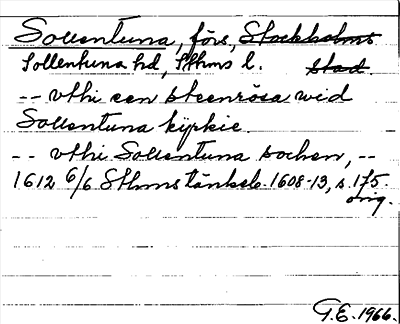 Sollentuna, förs, Stockholms
Sollentuna hd, Sthms l. stad.
-- vthi een steenrösa wid
Sollentuna kijrkie.
-- vthi Sollentuna sochen, --
1612 6/6 Sthms tänkeb. 1608-13, s. 175.
orig.
G.E. 1966.